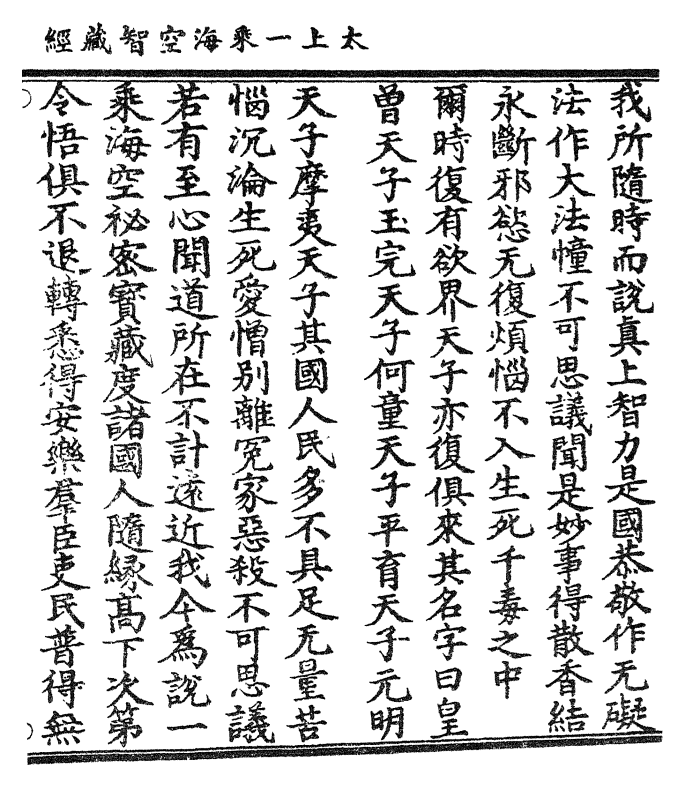 太上一乘海空智藏經
我所隨時而說真上智力是國恭敬作无礙
法作大法幢不可思議聞是妙事得散香結
永斷邪慾无復煩惱不入生死千毒之中
爾時復有欲界天子亦復俱來其名字曰皇
曾天子玉完天子何童天子平育天子元明
天子摩夷天子其國人民多不具足无量苦
惱沉淪生死愛憎別離冤家惡殺不可思議
若有至心聞道所在不計遠近我今為說一
乘海空祕密寶藏度諸國人隨緣高下次第
令悟俱不退轉悉得安樂羣臣吏民普得無